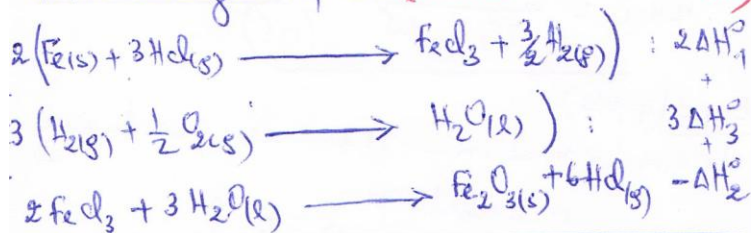 2(Fe(s) + 3HCl(g) ⟶ FeCl₃ + 3/2 H₂(g)) : 2ΔH°₁
+
3(H₂(g) + 1/2 O₂(g) ⟶ H₂O(l)) : 3ΔH°₃
+
2FeCl₃ + 3H₂O(l) ⟶ Fe₂O₃(s) + 6HCl(g) -ΔH°₂